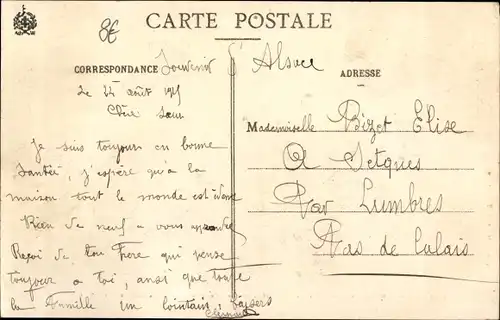 8€
CARTE POSTALE
CORRESPONDANCE
ADRESSE
Souvenir d'Alsace
Le 22 août 1915
Chère Sœur
Je suis toujours en bonne
Santée, j'espère qu'à la
maison tout le monde est
Rien de neuf a vous
Reçoi de ton Frère qui pense
toujour a toi, ansi que toute
la Famille un lointain Baisers
Mademoiselle Bizet Elise
A Setques
Par Lumbres
Pas de Calais